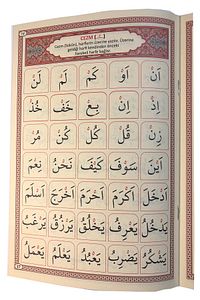 CEZM [ـْـ]
Cezm (Sükûn), harflerin üzerine yazılır. Üzerine
geldiği harfi kendinden önceki
harekeli harfe bağlar.
اَنْ اَوْ كَمْ لَمْ لَنْ
اِذْ اِنْ بِعْ خَفْ خُذْ
زِنْ قُلْ كُلْ كُنْ مُرْ
اَيْنَ سَوْفَ كَيْفَ نَحْنُ نِعْمَ
اَدْخَلَ اَكْرَمَ اَحْرَمَ اَخْرَجَ اَسْلَمَ
يَدْخُلُ يَعْرِفُ يَخْلُقُ يَرْزُقُ يَرْغَبُ
يَشْكُرُ يَضْرِبُ يَعْبُدُ يَعْلَمُ يَعْمَلُ